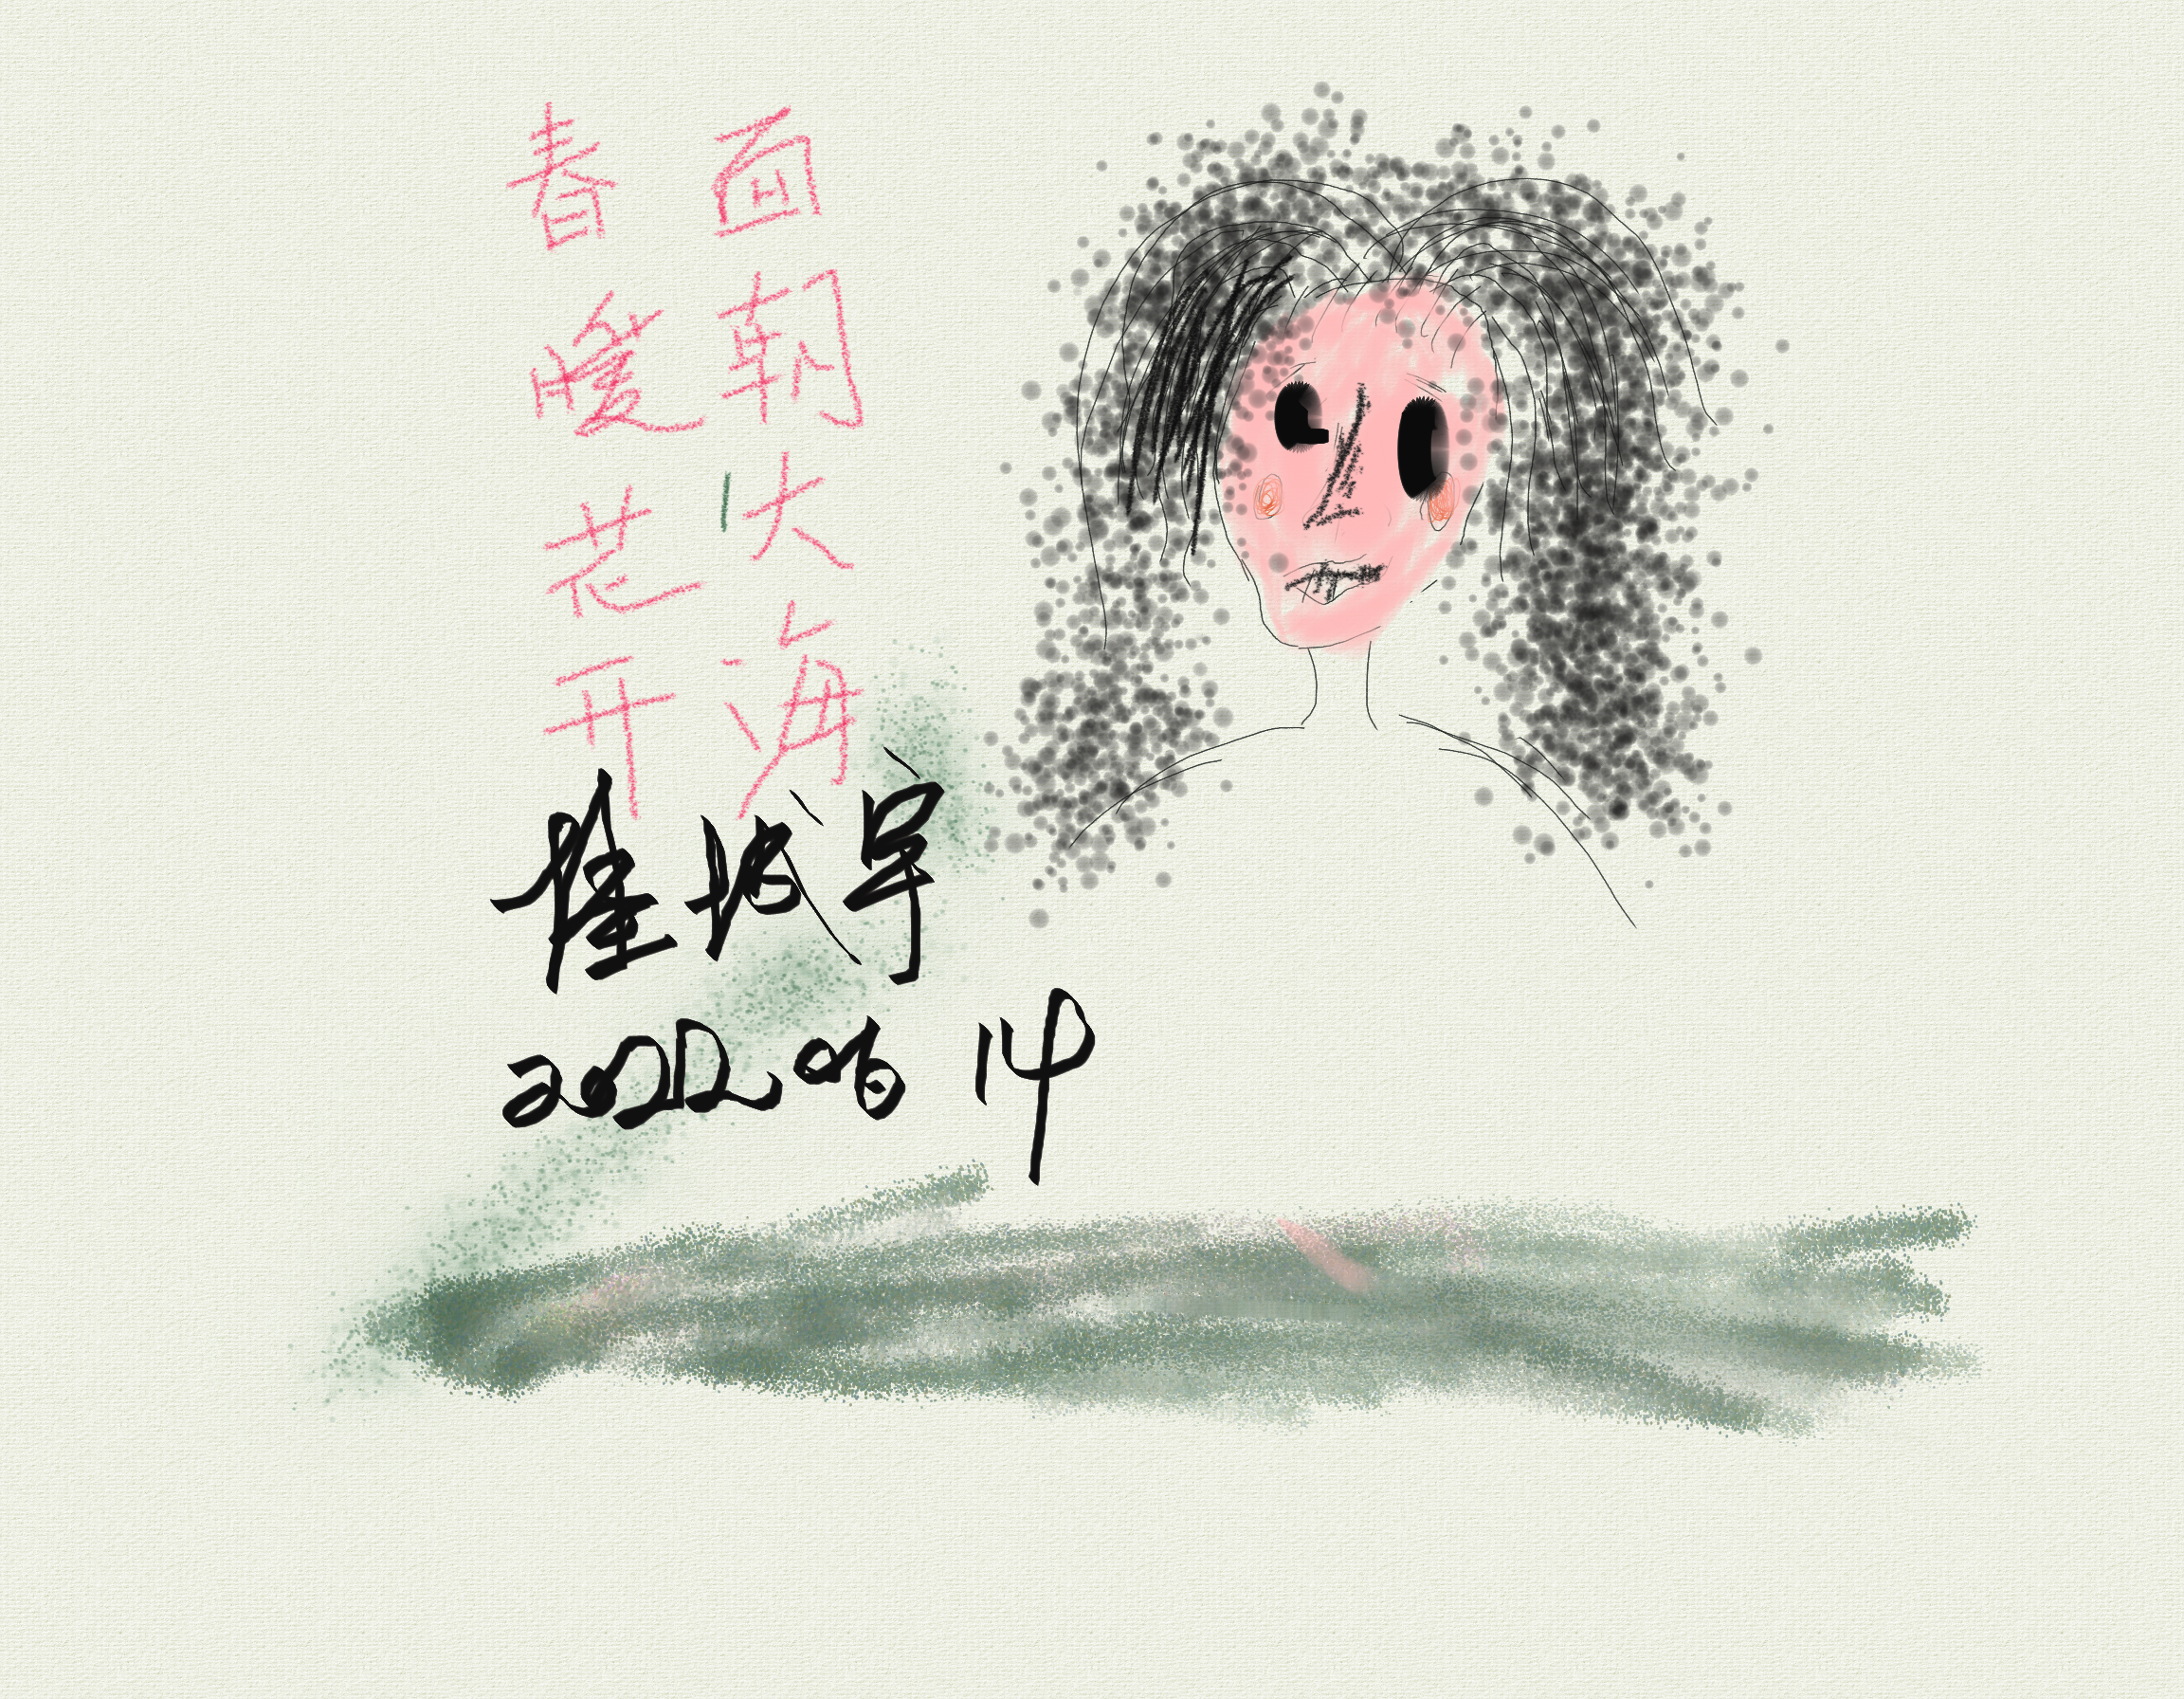 面朝大海
春暖花开
桂城宇
2022.06 14